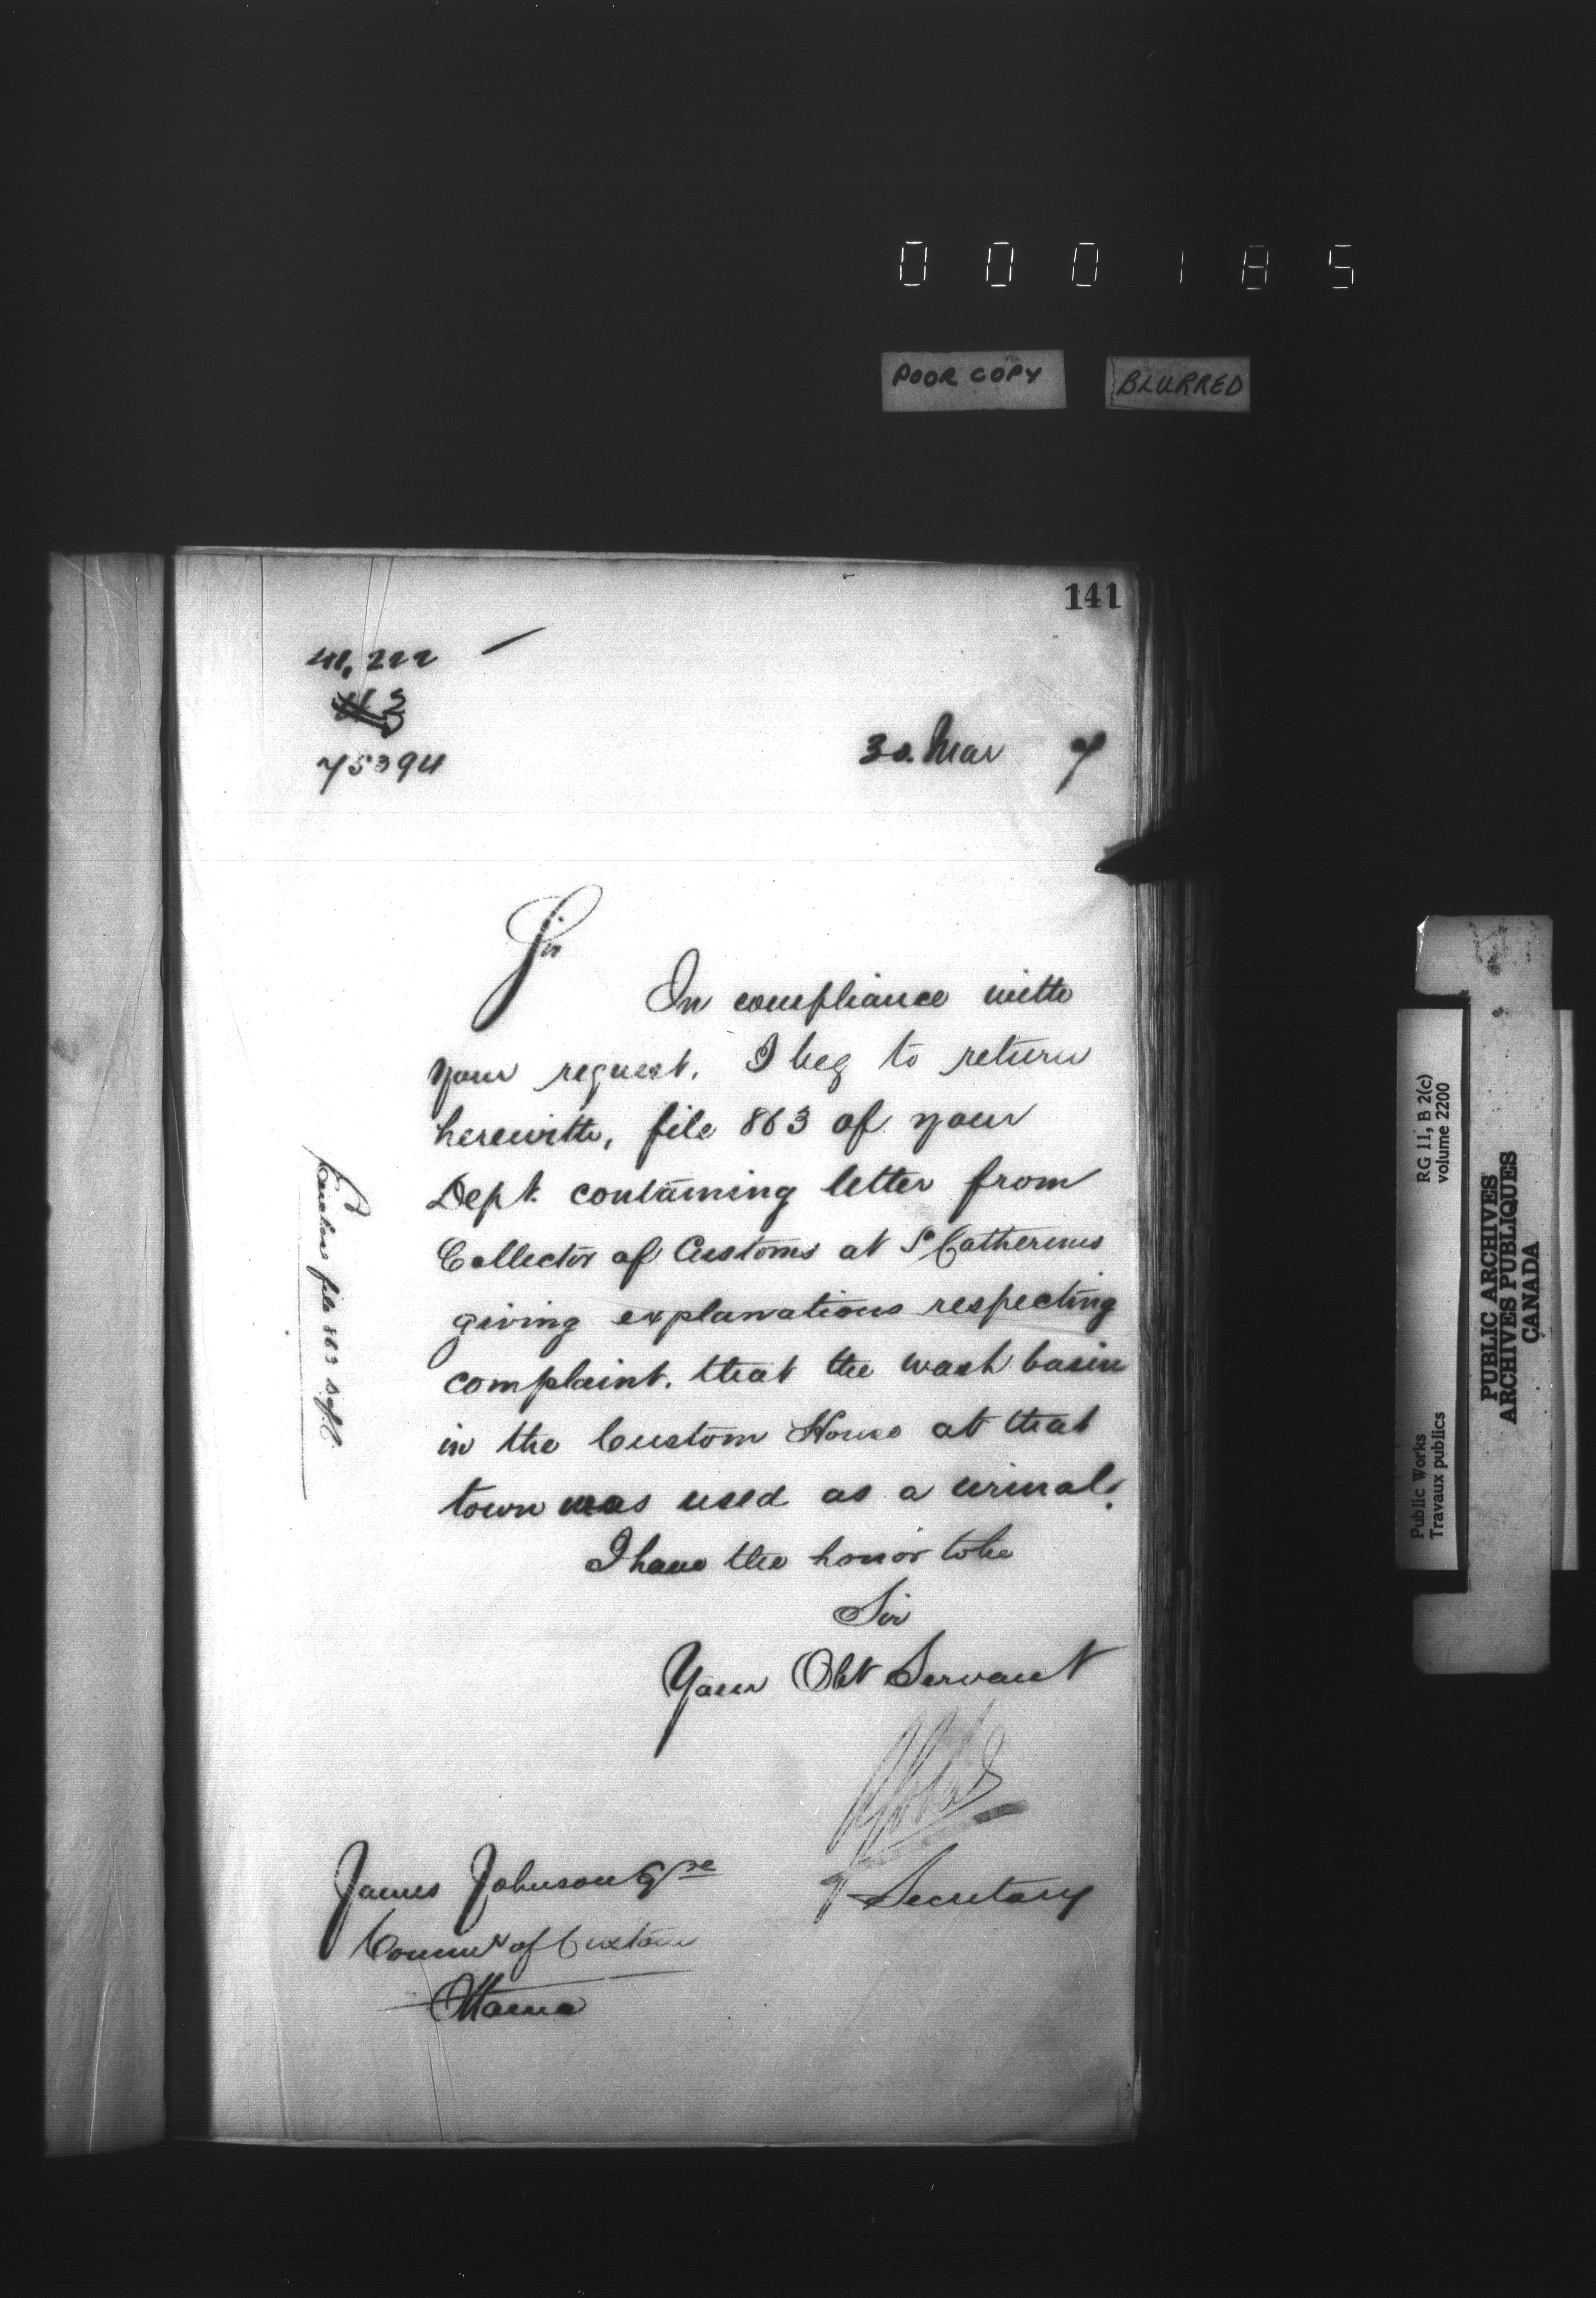 000185
POOR COPY BLURRED
141
41,222
75394
30. Mar 7
Sir
In compliance with
your request, I beg to return
herewith, file 863 of your
Dept. containing letter from
Collector of Customs at St Catherines
giving explanations respecting
complaint. that the wash basin
in the Custom House at that
town was used as a urinal.
I have the honor to be
Sir
Your Obt Servant
Secretary
James Johnson Esqre
Commr of Customs
Ottawa
Enclose file 863
Public Works
Travaux publics
RG 11, B 2(c)
volume 2200
PUBLIC ARCHIVES
ARCHIVES PUBLIQUES
CANADA